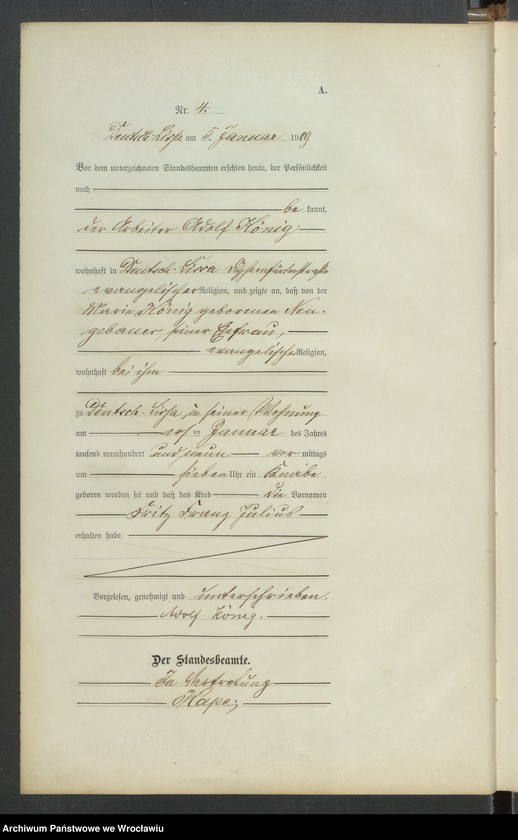 A.
Nr. 4.
Deutsch Lissa am 5. Januar 1909
Vor dem unterzeichneten Standesbeamten erschien heute, der Persönlichkeit
nach
be kannt,
der Arbeiter Adolf König
wohnhaft in Deutsch-Lissa
evangelischer Religion, und zeigte an, daß von der
Maria König geborenen Neu-
gebauer, seiner Ehefrau,
evangelischer Religion,
wohnhaft bei ihm
zu Deutsch-Lissa in seiner Wohnung
am Januar des Jahres
tausend neunhundert und neun vor mittags
um sieben Uhr ein Knabe
geboren worden sei und daß das Kind die Vornamen
Fritz Franz Julius
erhalten habe.
Vorgelesen, genehmigt und unterschrieben.
Adolf König.
Der Standesbeamte.
In Vertretung
Archiwum Państwowe we Wrocławiu